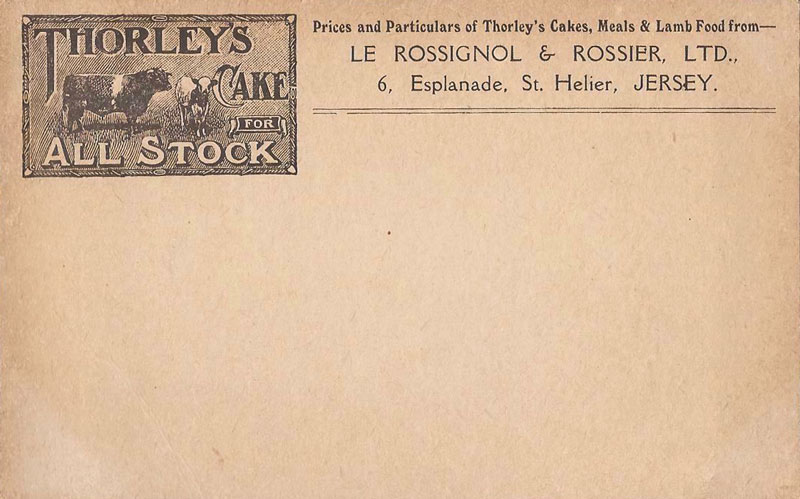 THORLEY'S
CAKE
FOR
ALL STOCK
Prices and Particulars of Thorley's Cakes, Meals & Lamb Food from—
LE ROSSIGNOL & ROSSIER, LTD.,
6, Esplanade, St. Helier, JERSEY.